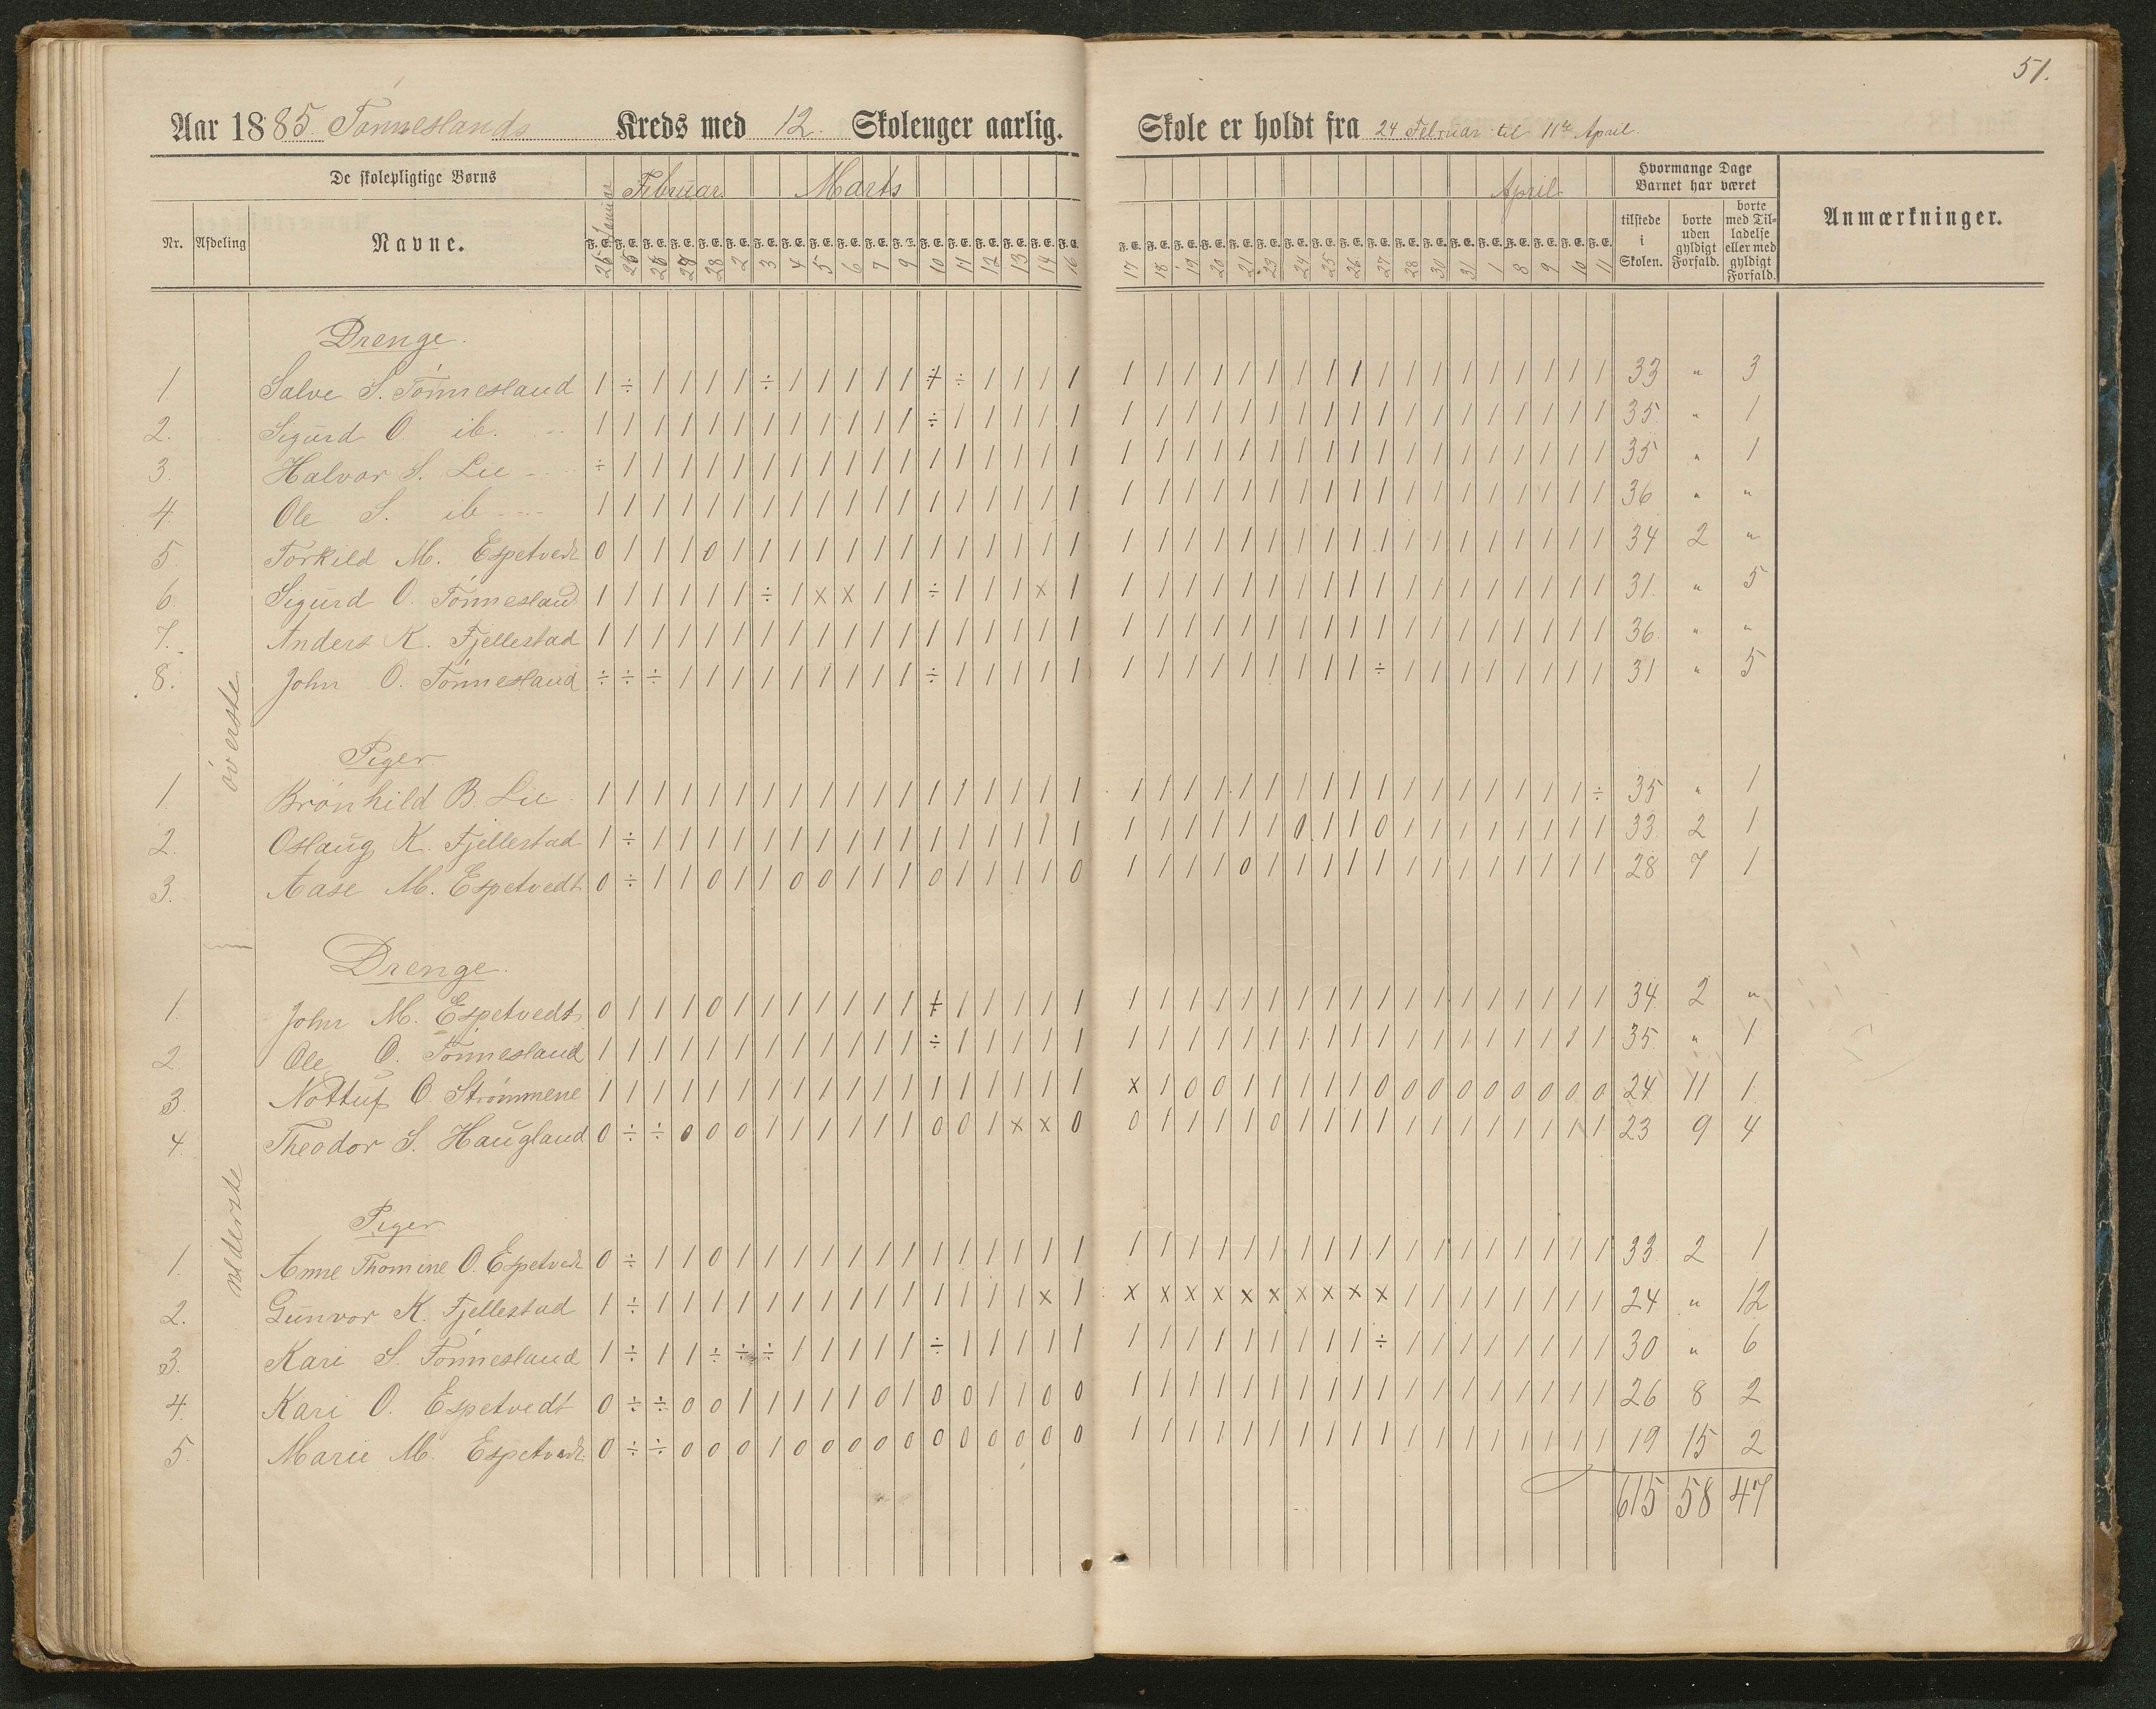 51.
Aar 1885. Tønneslands Kreds med 12. Skoleuger aarlig. Skole er holdt fra 24 Februar til 11te April.
De skolepligtige Børns
Januar Februar. Marts April
Hvormange Dage Barnet har været
Nr. Afdeling Navne. F. E. F. E. F. E. F. E. F. E. F. E. F. E. F. E. F. E. F. E. F. E. F. E. F. E. F. E. F. E. F. E. F. E. F. E. F. E. F. E. F. E. F. E. F. E. F. E. F. E. F. E. F. E. F. E. F. E. F. E. F. E. F. E. F. E. F. E. F. E. F. E. tilstede i Skolen. borte uden gyldigt Forfald. borte med Tilladelse eller med gyldigt Forfald. Anmærkninger.
28 2 3 4 5 6 7 9 10 11 12 13 14 16 17 18 19 20 21 23 24 25 26 27 28 30 31 1 8 9 10 11
øverste
Drenge.
1. Salve S. Tønnesland 1 ÷ 1 1 1 1 ÷ 1 1 1 1 1 ÷ ÷ 1 1 1 1 1 1 1 1 1 1 1 1 1 1 1 1 1 1 1 1 1 1 33 " 3
2. Sigurd O. ib. 1 1 1 1 1 1 1 1 1 1 1 1 ÷ 1 1 1 1 1 1 1 1 1 1 1 1 1 1 1 1 1 1 1 1 1 1 1 35. " 1
3. Halvor S. Lie ÷ 1 1 1 1 1 1 1 1 1 1 1 1 1 1 1 1 1 1 1 1 1 1 1 1 1 1 1 1 1 1 1 1 1 1 1 35 " 1
4. Ole S. ib 1 1 1 1 1 1 1 1 1 1 1 1 1 1 1 1 1 1 1 1 1 1 1 1 1 1 1 1 1 1 1 1 1 1 1 1 36 " "
5. Torkild M. Espetvedt 0 1 1 1 0 1 1 1 1 1 1 1 1 1 1 1 1 1 1 1 1 1 1 1 1 1 1 1 1 1 1 1 1 1 1 1 34 2 "
6. Sigurd O. Tønnesland 1 1 1 1 1 1 ÷ 1 x x 1 1 ÷ 1 1 1 x 1 1 1 1 1 1 1 1 1 1 1 1 1 1 1 1 1 1 1 31. " 5
7. Anders K. Fjellestad 1 1 1 1 1 1 1 1 1 1 1 1 1 1 1 1 1 1 1 1 1 1 1 1 1 1 1 1 1 1 1 1 1 1 1 1 36. " "
8. John O. Tønnesland ÷ ÷ ÷ 1 1 1 1 1 1 1 1 1 ÷ 1 1 1 1 1 1 1 1 1 1 1 1 1 1 ÷ 1 1 1 1 1 1 1 1 31 " 5
Piger
1. Brønhild B. Lie 1 1 1 1 1 1 1 1 1 1 1 1 1 1 1 1 1 1 1 1 1 1 1 1 1 1 1 1 1 1 1 1 1 1 1 ÷ 35 " 1
2. Oslaug K. Fjellestad 1 ÷ 1 1 1 1 1 1 1 1 1 1 1 1 1 1 1 1 1 1 1 1 1 1 0 1 1 0 1 1 1 1 1 1 1 1 33. 2 1
3. Aase M. Espetvedt 0 ÷ 1 1 0 1 1 0 0 1 1 1 0 1 1 1 1 0 1 1 1 1 0 1 1 1 1 1 1 1 1 1 1 1 1 1 28 7 1
nederste
Drenge.
1. John M. Espetvedt 0 1 1 1 0 1 1 1 1 1 1 1 1 1 1 1 1 1 1 1 1 1 1 1 1 1 1 1 1 1 1 1 1 1 1 1 34. 2 "
2. Ole O. Tønnesland 1 1 1 1 1 1 1 1 1 1 1 1 ÷ 1 1 1 1 1 1 1 1 1 1 1 1 1 1 1 1 1 1 1 1 1 1 1 35. " 1
3. Nottuf O. Strømmene 1 1 1 1 1 1 1 1 1 1 1 1 1 1 1 1 1 1 x 1 0 0 1 1 1 1 1 0 0 0 0 0 0 0 0 0 24 11 1.
4. Theodor S. Haugland 0 ÷ ÷ 0 0 0 1 1 1 1 1 1 0 0 1 x x 0 0 1 1 1 1 0 1 1 1 1 1 1 1 1 1 1 1 1 23 9 4
Piger
1. Anne Thomine O. Espetvedt 0 ÷ 1 1 0 1 1 1 1 1 1 1 1 1 1 1 1 1 1 1 1 1 1 1 1 1 1 1 1 1 1 1 1 1 1 1 33. 2 1
2. Gunvor K. Fjellestad 1 ÷ 1 1 1 1 1 1 1 1 1 1 1 1 1 1 x 1 x x x x x x x x x x 1 1 1 1 1 1 1 1 24 " 12
3. Kari S. Tønnesland 1 ÷ 1 1 ÷ ÷ ÷ 1 1 1 1 1 ÷ 1 1 1 1 1 1 1 1 1 1 1 1 1 1 ÷ 1 1 1 1 1 1 1 1 30 " 6
4. Kari O. Espetvedt 0 ÷ ÷ 0 0 1 1 1 1 1 0 1 0 0 1 1 0 0 1 1 1 1 1 1 1 1 1 1 1 1 1 1 1 1 1 1 26 8 2
5. Marie M. Espetvedt 0 ÷ ÷ 0 0 0 1 0 0 0 0 0 0 0 0 0 0 0 1 1 1 1 1 1 1 1 1 1 1 1 1 1 1 1 1 1 19 15 2
615 58 47